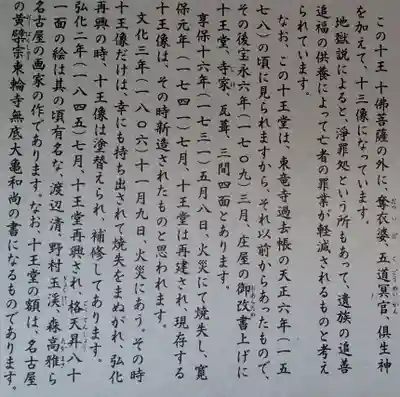 この十王十佛菩薩の外に、奪衣婆、五道冥官、倶生神
だついば ごどうめいかん ぐしょうじん
を加えて、十三像になっています。
地獄説によると、浄罪処という所もあって、遺族の追善
追福の供養によって亡者の罪業が軽減されるものと考え
られています。
なお、この十王堂は、東竜寺過去帳の天正六年（一五
七八）の頃に見られますから、それ以前からあったもので、
その後宝永六年（一七〇九）三月、庄屋の御改書上げに
十王堂、寺家、瓦葺、三間四面とあります。
享保十六年（一七三一）五月八日、火災にて焼失し、寛
保元年（一七四一）七月、十王堂は再建され、現存する
十王像は、その時新造されたものと思われます。
文化三年（一八〇六）十一月九日、火災にあう。その時
十王像だけは、幸にも持ち出されて焼失をまぬがれ、弘化
再興の時、十王像は塗替えられ、補修してあります。
弘化二年（一八四五）七月、十王堂再興され、格天井八十
一面の絵は其の頃有名な、渡辺清、野村玉渓、森高雅ら
名古屋の画家の作であります。なお、十王堂の額は、名古屋
の黄檗宗東輪寺無底大亀和尚の書になるものであります。